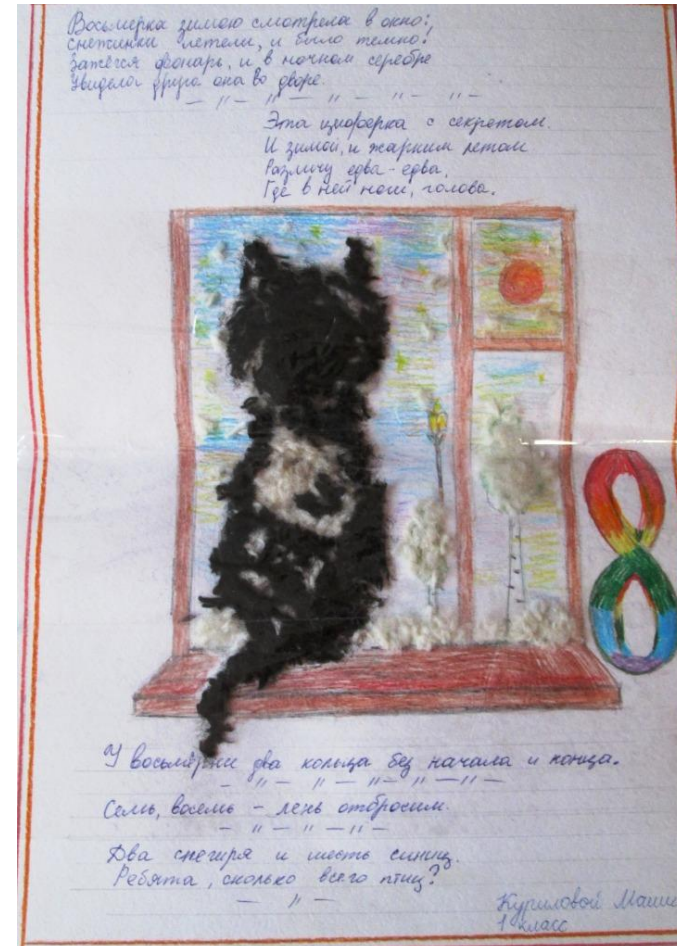 Восьмерка зимою смотрела в окно:
снежинки летели, и было темно.
Зажёгся фонарь, и в ночном серебре
Увидела друга она во дворе.
— " — " — " — " —
Эта циферка с секретом.
И зимой, и жарким летом
Различу едва-едва,
Где в ней ноги, голова.
У восьмёрки два кольца без начала и конца.
— " — " — " — " —
Семь, восемь – лень отбросим.
— " — " — " —
Два снегиря и шесть синиц.
Ребята, сколько всего птиц?
— " —
Куриловой Маши
1 класс
8